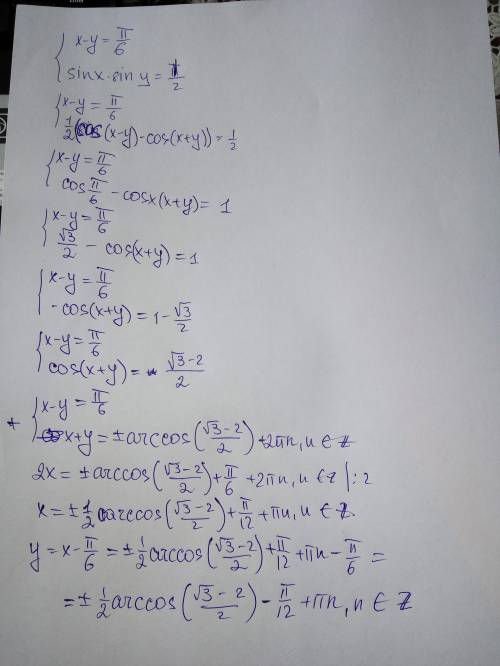 x-y = π/6
sinx·sin y = 1/2
x-y = π/6
1/2(cos(x-y)-cos(x+y)) = 1/2
x-y = π/6
cos π/6 - cosx(x+y) = 1
x-y = π/6
√3/2 - cos(x+y) = 1
x-y = π/6
-cos(x+y) = 1-√3/2
x-y = π/6
cos(x+y) = (√3-2)/2
+ x-y = π/6
x+y = ±arccos((√3-2)/2)+2πn, n∈Z
2x = ±arccos((√3-2)/2)+π/6+2πn, n∈Z |:2
x = ±1/2 arccos((√3-2)/2)+π/12+πn, n∈Z
y = x-π/6 = ±1/2 arccos((√3-2)/2)+π/12+πn-π/6 =
= ±1/2 arccos((√3-2)/2)-π/12+πn, n∈Z